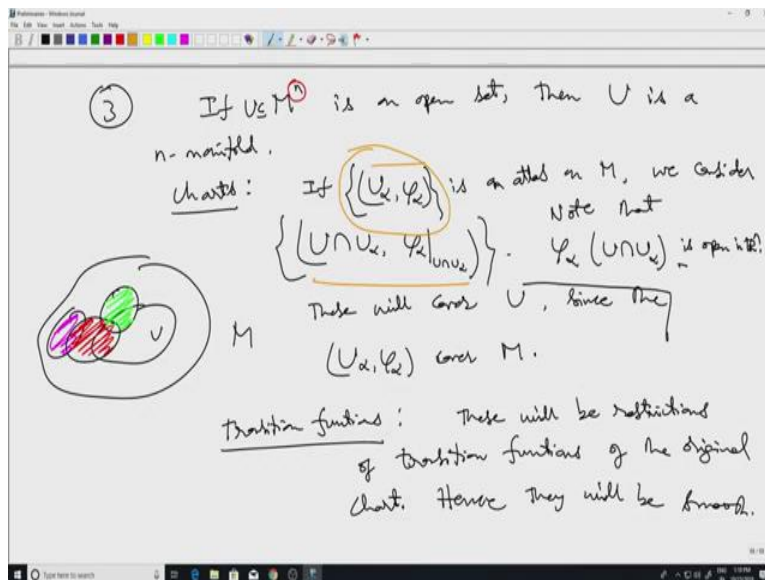 Preliminaries - Windows Journal
File Edit View Insert Actions Tools Help
③ If U ⊆ Mⁿ is an open set, then U is a
n-manifold.
Charts : If {(U_α, φ_α)} is an atlas on M, we consider
{(U∩U_α, φ_α|_{U∩U_α})}. Note that
φ_α (U∩U_α) is open in ℝⁿ.
These will cover U, since the
(U_α, φ_α) cover M.
U
M
Transition functions : These will be restrictions
of transition functions of the original
chart. Hence they will be smooth.
Type here to search